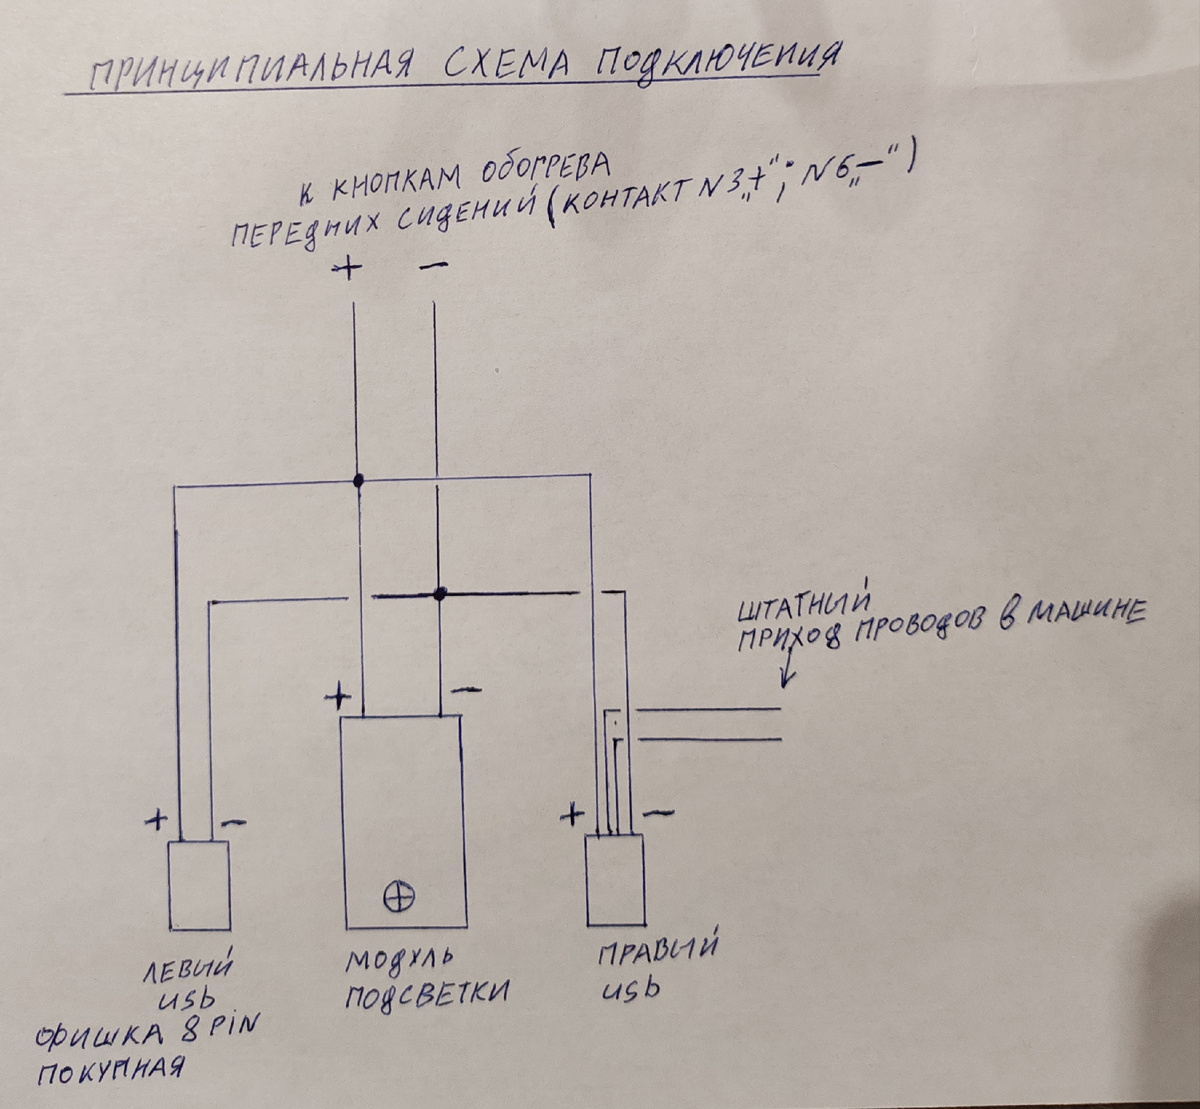 ПРИНЦИПИАЛЬНАЯ СХЕМА ПОДКЛЮЧЕНИЯ
К КНОПКАМ ОБОГРЕВА
ПЕРЕДНИХ СИДЕНИЙ (КОНТАКТ N3„+“; N6„—“)
+ —
ШТАТНЫЙ
ПРИХОД ПРОВОДОВ В МАШИНЕ
+ —
+ —
+ —
ЛЕВЫЙ
usb
ФИШКА 8 PiN
ПОКУПНАЯ
МОДУЛЬ
ПОДСВЕТКИ
ПРАВЫЙ
usb